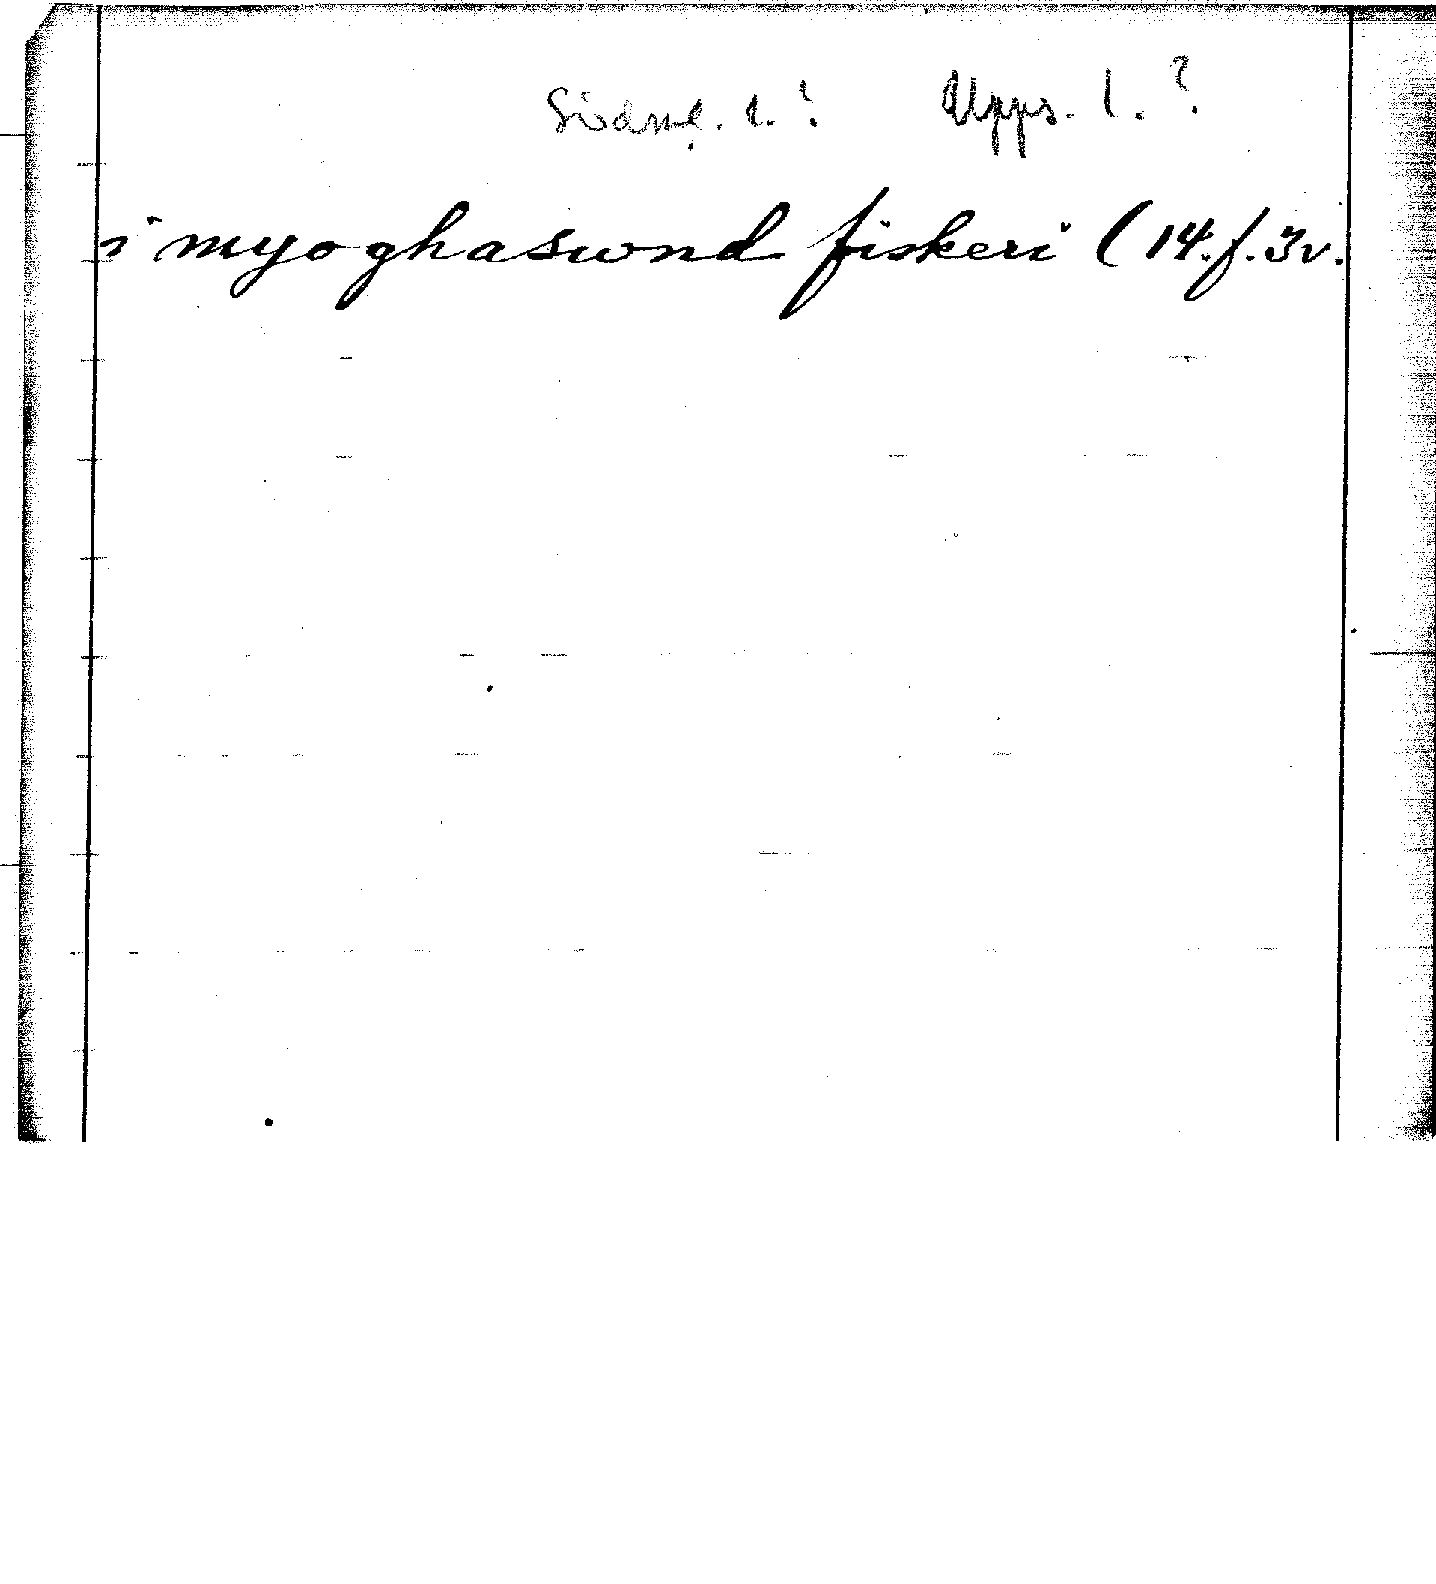 Södml. l.? Upps. l.?
i myoghaswnd fiskeri (14.f.3v.